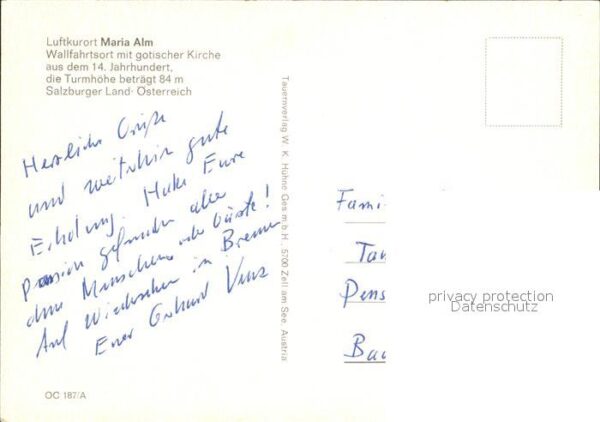 Luftkurort Maria Alm
Wallfahrtsort mit gotischer Kirche
aus dem 14. Jahrhundert,
die Turmhöhe beträgt 84 m
Salzburger Land · Österreich
Herzliche Grüße
und weiterhin gute
Erholung. Habe Eure
Pension gefunden aber
ohne Menschen oder Gäste!
Auf Wiedersehen in Bremen
Euer Gerhard
OC 187/A
Tauernverlag W. K. Hühne Ges.m.b.H., 5700 Zell am See, Austria
Fami
Tan
Pens
Bad
privacy protection
Datenschutz